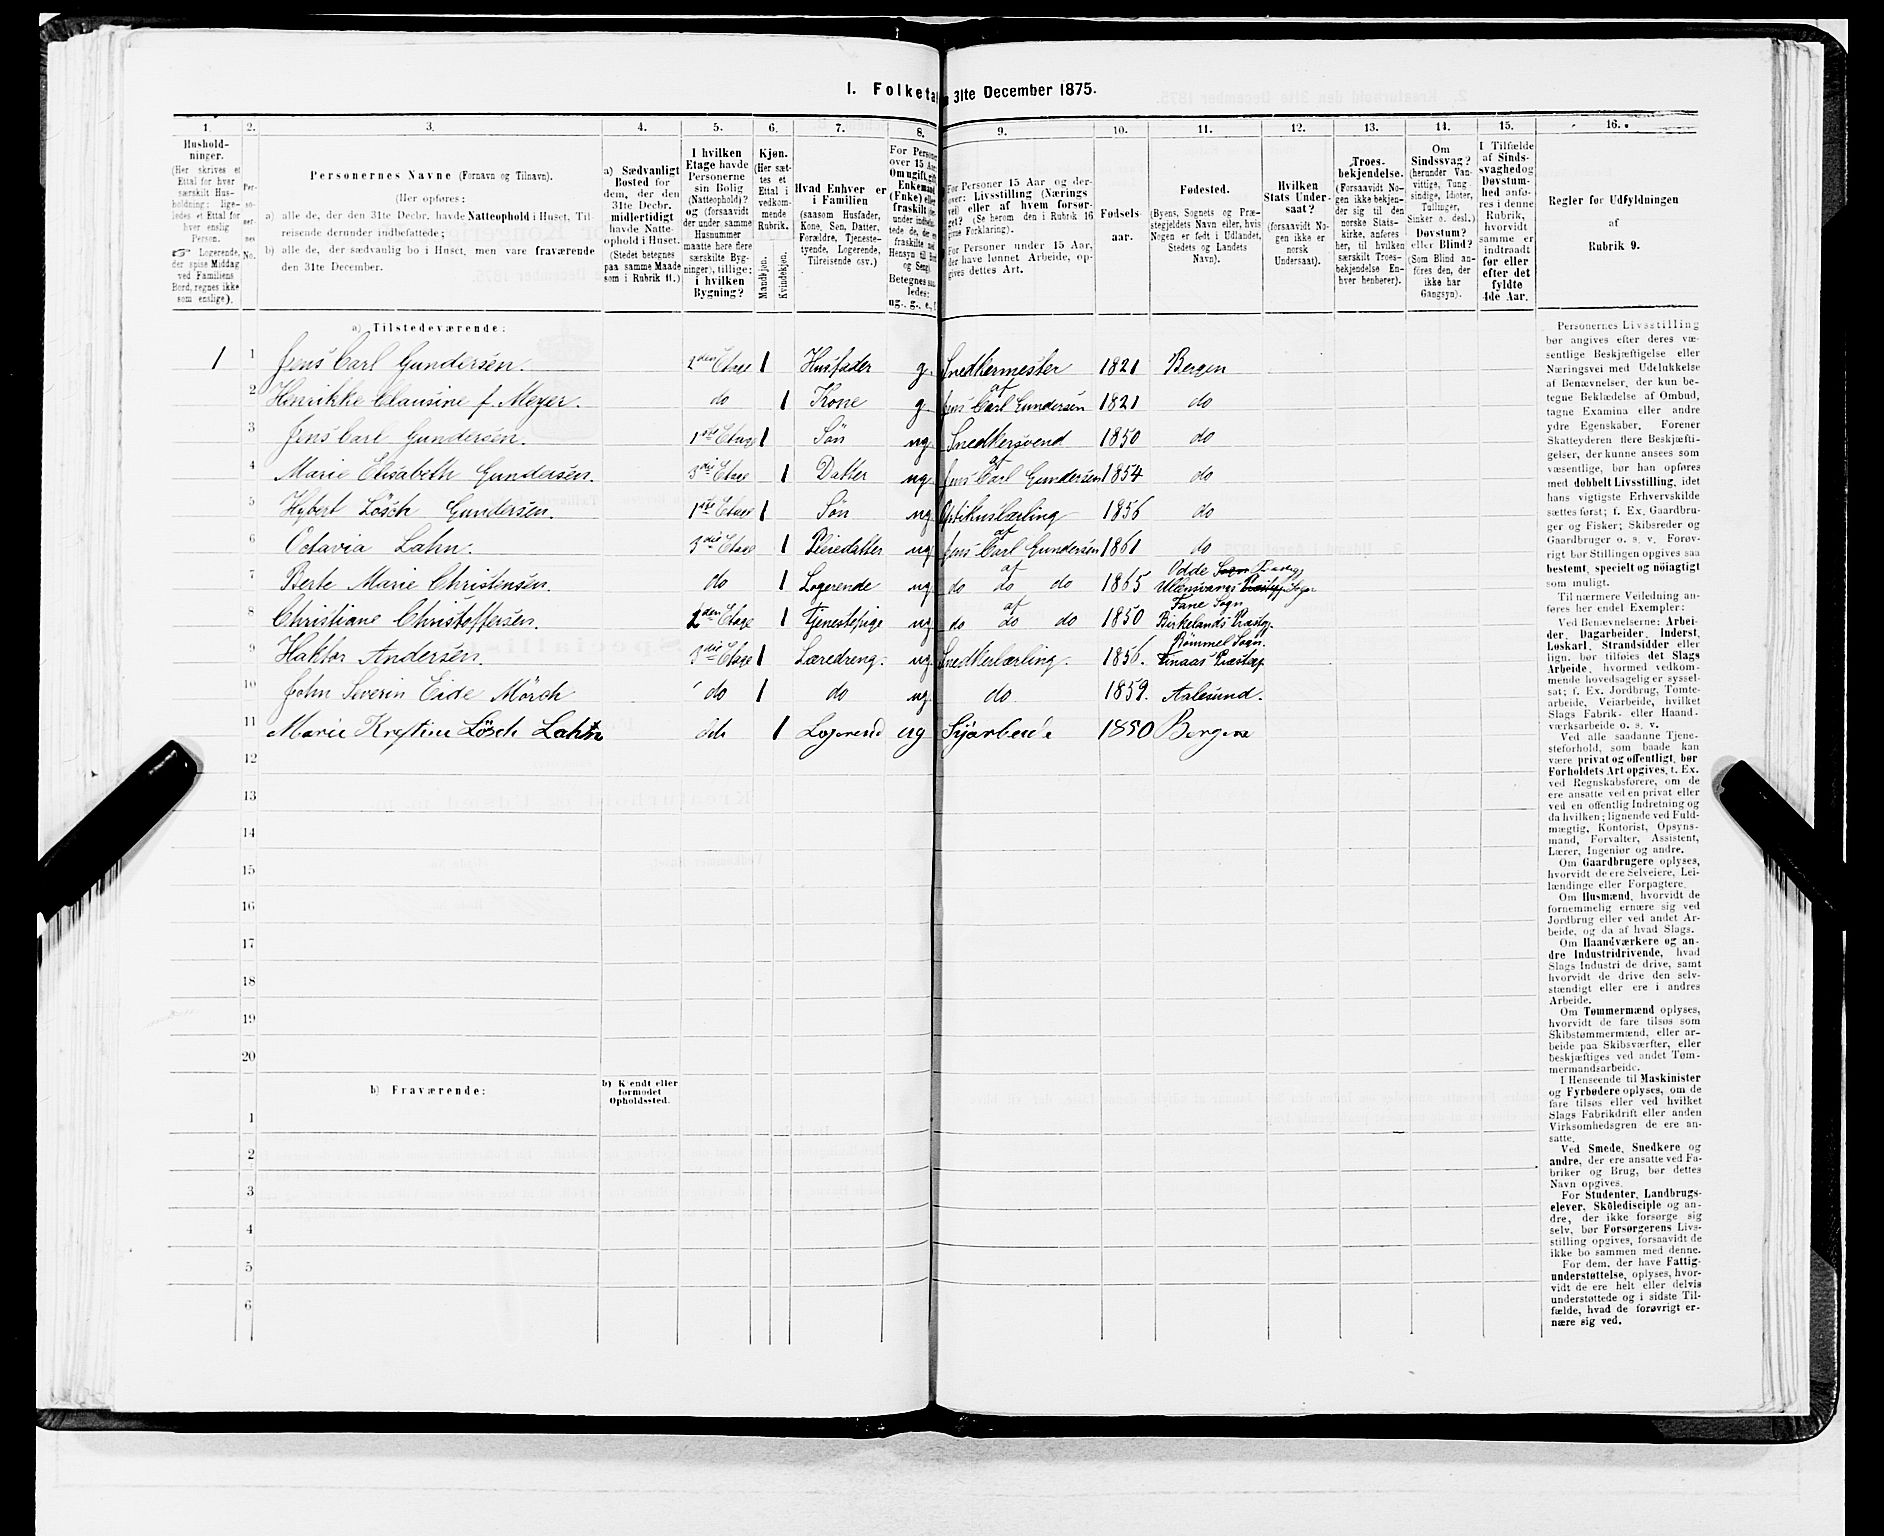 I. Folketal 31te December 1875.
1. 2. 3. 4. 5. 6. 7. 8. 9. 10. 11. 12. 13. 14. 15. 16.
Hushold-
ninger.
(Her skrives et
Ettal for hver
særskilt Hus-
holdning; lige-
ledes et Ettal for
hver enslig
Person.
☞ Logerende,
der spise Middag
ved Familiens
Bord, regnes ikke
som enslige).
Per-
so-
ner-
nes
No.
Personernes Navne (Fornavn og Tilnavn).
(Her opføres:
a) alle de, der den 31te Decbr. havde Natteophold i Huset, Til-
reisende derunder indbefattede;
b) alle de, der sædvanlig bo i Huset, men vare fraværende
den 31te December.
a) Sædvanligt
Bosted for
dem, der den
31te Decbr.
midlertidigt
havde Natte-
ophold i Huset.
(Stedet betegnes
paa samme Maade
som i Rubrik 11.)
I hvilken
Etage havde
Personerne
sin Bolig
(Natteophold)?
og (forsaavidt
der under samme
Husnummer
maatte høre flere
særskilte Byg-
ninger), tillige:
i hvilken
Bygning?
Kjøn.
(Her sæt-
tes et
Ettal i
vedkom-
mende
Rubrik.
Mandkjøn.
Kvindekjøn.
Hvad Enhver er
i Familien
(saasom Husfader,
Kone, Søn, Datter,
Forældre, Tjeneste-
tyende, Logerende,
Tilreisende osv.)
For Personer
over 15 Aar:
Om ugift, gift,
Enkemand
(Enke) eller
fraskilt
Betegnes saa-
ledes:
ug., g., e., f.
For Personer 15 Aar og der-
over: Livsstilling (Nærings
vei) eller af hvem forsør-
get? (Se herom den i Rubrik 16
givne Forklaring).
For Personer under 15 Aar,
der have lønnet Arbeide, op-
gives dettes Art.
Fødsels-
aar.
Fødested.
(Byens, Sognets og Præ-
stegjeldets Navn eller, hvis
Nogen er født i Udlandet,
Stedets og Landets
Navn).
Hvilken
Stats Under-
saat?
(forsaavidt No-
gen ikke er
norsk
Undersaat).
Troes-
bekjendelse.
(Forsaavidt No-
gen ikke bekjen-
der sig til den
norske Stats-
kirke, anføres
her, til hvilken
særskilt Troes-
bekjendelse En-
hver henhører).
Om
Sindssvag?
(herunder Van-
vittige, Tung
sindige, Idioter,
Tullinger,
Sinker o. desl.)
Døvstum?
eller Blind?
(Som Blind an-
føres den, der
ikke har
Gangsyn).
I Tilfælde
af Sinds-
svaghed og
Døvstum-
hed anfø-
res i denne
Rubrik,
hvorvidt
samme er
indtraadt
før eller
efter det
fyldte
4de Aar.
Regler før Udfyldningen
af
Rubrik 9.
a) Tilstedeværende:
1 1 Jens Carl Gundersen. 2den Etage 1 Husfader g. Snedkermester 1821 Bergen
2 Henrikke Clausine f. Meyer. do 1 Kone g. af Jens Carl Gundersen 1821 do
3 Jens Carl Gundersen. 1ste Etage 1 Søn ug. Snedkersvend 1850 do
4 Marie Elisabeth Gundersen. 3die Etage 1 Datter ug. af Jens Carl Gundersen 1854 do
5 Hybert Lösch Gundersen. 1ste Etage 1 Søn ug. Optikuslærling 1856 do
6 Octavia Lahn. 3die Etage 1 Pleiedatter ug. af Jens Carl Gundersen 1861 do
7 Berte Marie Christensen. do 1 Logerende ug. af do do do 1865 Odde Ullensvangs
8 Christiane Christoffersen. 2den Etage 1 Tjenestepige ug. af do do do 1850 Fane Sogn Birkelands Præstg.
9 Haktor Andersen. 3die Etage 1 Læredreng. ug. Snedkerlærling. 1856. Bømmel Sogn. Finaas Præstg.
10 John Severin Eide Mörch do 1 do ug. do 1859. Aalesund.
11 Marie Kristine Lösch Lahn do 1 Logerend ug Syarbeide 1850 Bergen
12
13
14
15
16
17
18
19
20
b) Fraværende: b) Kjendt eller
formodet
Opholdssted.
1
2
3
4
5
6
Personernes Livsstilling
bør angives efter deres væ-
sentlige Beskjæftigelse eller
Næringsvei med Udelukkelse
af Benævnelser, der kun be-
tegne Beklædelse af Ombud,
tagne Examina eller andre
ydre Egenskaber. Forener
Skatteyderen flere Beskjæfti-
gelser, der kunne ansees som
væsentlige, bør han opføres
med dobbelt Livsstilling, idet
hans vigtigste Erhvervskilde
sættes først; f. Ex. Gaardbru-
ger og Fisker; Skibsreder og
Gaardbruger o. s. v. Forøv-
rigt bør Stillingen opgives saa
bestemt, specielt og nöiagtigt
som muligt.
Til nærmere Veiledning an-
føres her endel Exempler:
Ved Benævnelserne: Arbei-
der, Dagarbeider, Inderst,
Løskarl, Strandsidder eller
lign. bør tilføies det Slags
Arbeide, hvormed vedkom-
mende hovedsagelig er syssel-
sat; f. Ex. Jordbrug, Tomte-
arbeide, Veiarbeide, hvilket
Slags Fabrik- eller Haand-
værksarbeide o. s. v.
Ved alle saadanne Tjene-
steforhold, som baade kan
være privat og offentligt, bør
Forholdets Art opgives, t. Ex.
ved Regnskabsførere, om de
ere ansatte ved en privat eller
ved en offentlig Indretning og
da hvilken; lignende ved Fuld-
mægtig, Kontorist, Opsyns-
mand, Forvalter, Assistent,
Lærer, Ingeniør og andre.
Om Gaardbrugere oplyses,
hvorvidt de ere Selveiere, Lei-
lændinge eller Forpagtere.
Om Husmænd, hvorvidt de
fornemmelig ernære sig ved
Jordbrug eller ved andet Ar-
beide, og da af hvad Slags.
Om Haandværkere og an-
dre Industridrivende, hvad
Slags Industri de drive, samt
hvorvidt de drive den selv-
stændigt eller ere i andres
Arbeide.
Om Tømmermænd oplyses,
hvorvidt de fare tilsøs som
Skibstømmermænd, eller ar-
beide paa Skibsværfter, eller
beskjæftiges ved andet Tøm-
mermandsarbeide.
I Henseende til Maskinister
og Fyrbødere oplyses, om de
fare tilsøs eller ved hvilket
Slags Fabrikdrift eller anden
Virksomhedsgren de ere an-
satte.
Ved Smede, Snedkere og
andre, der ere ansatte ved Fa-
briker og Brug, bør dettes
Navn opgives.
For Studenter, Landbrugs-
elever, Skoledisciple og an-
dre, der ikke forsørge sig
selv, bør Forsørgerens Livs-
stilling opgives, forsaavidt de
ikke bo sammen med denne.
For dem, der have Fattig-
understøttelse, oplyses, hvor-
vidt de ere helt eller delvis
understøttede og i sidste Til-
fælde, hvad de forøvrigt er-
nære sig ved.